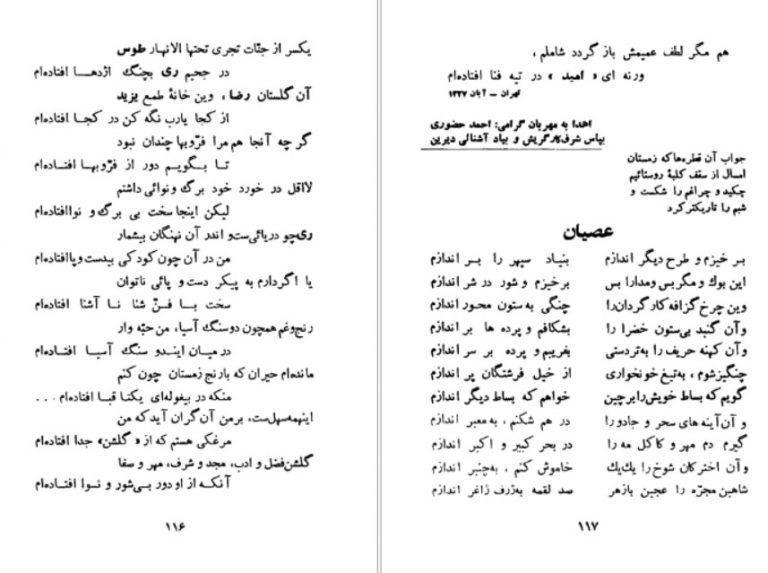 یکسر از جنّات تجری تحتها الانهار طوس
در جحیم ری بچنگ اژدهـا افتاده‌ام
آن گلستان رضا، وین خانهٔ طمع یزید
از کجا یارب نگه کن در کجـا افتاده‌ام
گر چه آنجا هم مرا فرّوبها چندان نبود
تـا بگـویـم دور از فرّوبهـا افتاده‌ام
لااقل در خورد خود برگ ونوائی داشتم
لیکن اینجا سخت بی برگ و نواافتاده‌ام
ری‌چو دریائی‌ست‌و اندر آن نهنگان بیشمار
من در آن چون کودکی بیدست‌وپاافتاده‌ام
یا اگردارم به پیکر دست و پائی ناتوان
سخت بـا فـنّ شنا نـا آشنا افتاده‌ام
رنج‌وغم همچون دوسنگ آسیا، من حبّه وار
در میـان ایندو سنگ آسیـا افتـاده‌ام
مانده‌ام حیران که بارنج زمستان چون کنم
منکه در بیغوله‌ای یکتا قبـا افتاده‌ام ...
اینهمه‌سهل‌ست، برمن آن گران آید که من
مرغکی هستم که از « گلشن» جدا افتاده‌ام
گلشن‌فضل و ادب، مجد و شرف، مهر و صفا
آنکـه از او دور بـی‌شور و نـوا افتـاده‌ام
۱۱۶
هم مگر لطف عمیمش باز گردد شاملم ،
ورنه ای « امید » در تیه فنا افتاده‌ام
تهران – آبان ۱۳۲۷
اهدا به مهربان گرامی: احمد حضوری
بپاس شرف‌کارگریش و بیاد آشنائی دیرین
جواب آن قطره‌هاکه زمستان
امسال از سقف کلبهٔ روستائیم
چکید و چراغم را شکست و
شبم را تاریکترکرد
عصیان
بر خیزم و طرح دیگر اندازم بنیاد سپهر را بـر اندازم
این بوك و مگر بس ومدارا بس برخیزم و شور در شر اندازم
وین چرخ گزافه کار گردان‌را چنگی به‌ستون محور اندازم
وآن گنبد بی‌ستون خضرا را بشکافم و پرده ها بر اندازم
وآن کهنه حریف را به‌تردستی بفریبم و پرده بر سر اندازم
چنگیزشوم ، به‌تیغ خونخواری از خیل فرشتگان پر اندازم
گویم‌که بساط خویش‌رابرچین خواهم که بساط دیگر اندازم
و آن‌آینه های سحر و جادو را در هم شکنم ، به‌معبر اندازم
گیرم دم مهر و کاکل مه را در بحر کبیر و اکبر اندازم
وآن اخترکان شوخ را یك‌یك خاموش کنم ، به‌چنبر اندازم
شاهین مجرّه را عجین بازهر صد لقمه به‌ژرف زاغر اندازم
۱۱۷